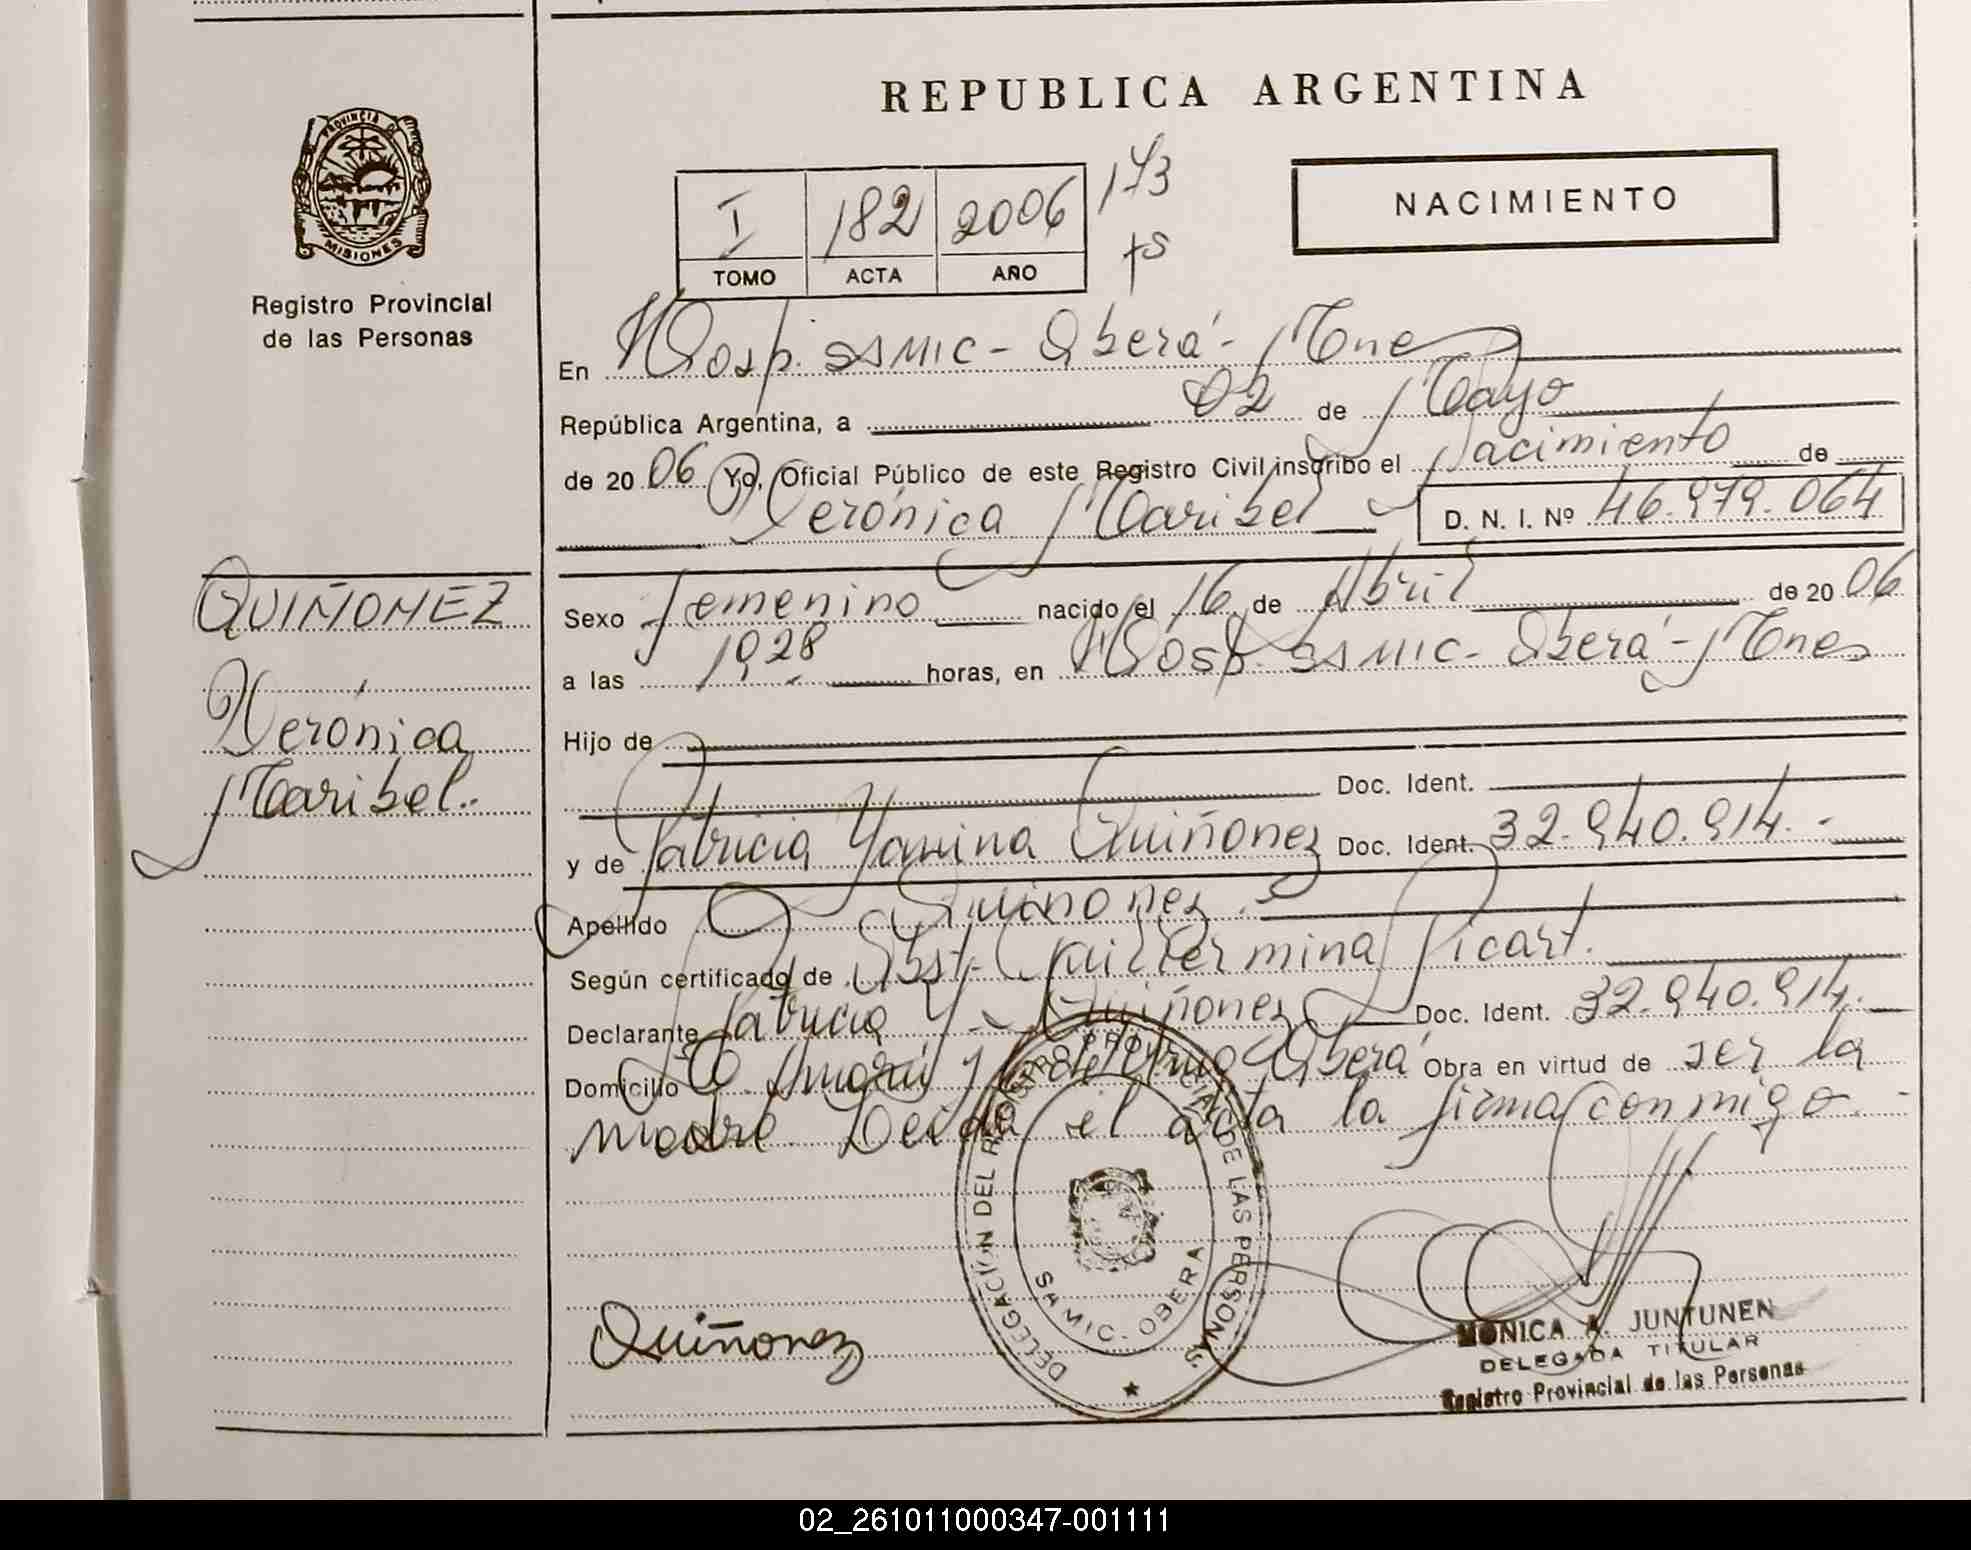 REPUBLICA ARGENTINA
PROVINCIA DE MISIONES
Registro Provincial
de las Personas
I 182 2006 173
TOMO ACTA AÑO
NACIMIENTO
En Hosp. SAMIC - Oberá - Mnes
República Argentina, a 02 de Mayo
de 2006 Yo, Oficial Público de este Registro Civil inscribo el Nacimiento de
Verónica Maribel D. N. I. Nº 46.979.064
QUIÑONEZ
Verónica
Maribel.
Sexo femenino nacido el 16 de Abril de 2006
a las 1928 horas, en Hosp. SAMIC - Oberá - Mnes
Hijo de
Doc. Ident.
y de Patricia Yanina Quiñonez Doc. Ident. 32.940.914.-
Apellido Quiñonez.
Según certificado de Obst. Guillermina Picart.
Declarante Patricia Y. Quiñonez Doc. Ident. 32.940.914.
Domicilio Oberá Obra en virtud de ser la
madre. Leída el acta la firma conmigo.-
DELEGACIÓN DEL REGISTRO PROVINCIAL DE LAS PERSONAS
SAMIC - OBERA
Quiñonez
MONICA A. JUNTUNEN
DELEGADA TITULAR
Registro Provincial de las Personas
02_261011000347-001111